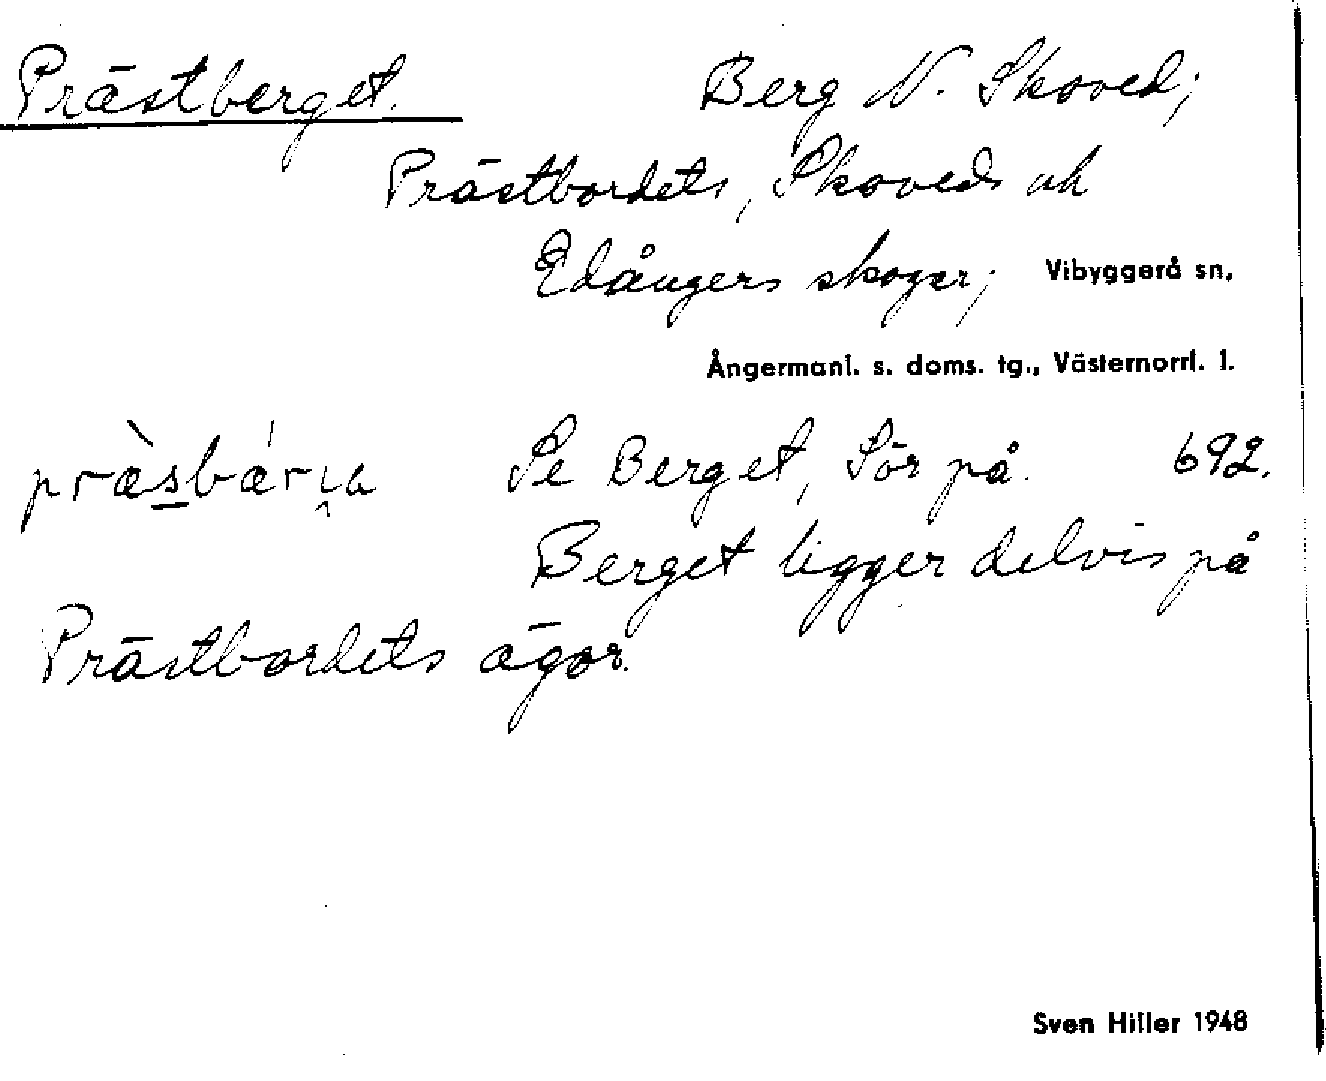 Prästberget. Berg N. Skoved;
Prästbordets, Skoveds och
Edångers skogar; Vibyggerå sn,
Ångermanl. s. doms. tg., Västernorrl. l.
Se Berget, Sör på. 692.
Berget ligger delvis på
Prästbordets ägor.
Sven Hiller 1948